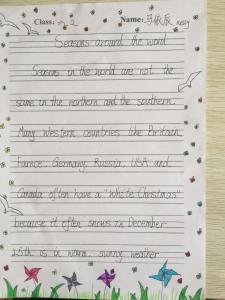 Class: 2 Name: Kelly
Seasons around the word
Seasons in the world are not the
same in the northern and the southern.
Many Western countries like Britain,
France, Germany, Russia, USA and
Canada often have a "White Christmas"
because it often snows in December
25th is in warm, sunny weather